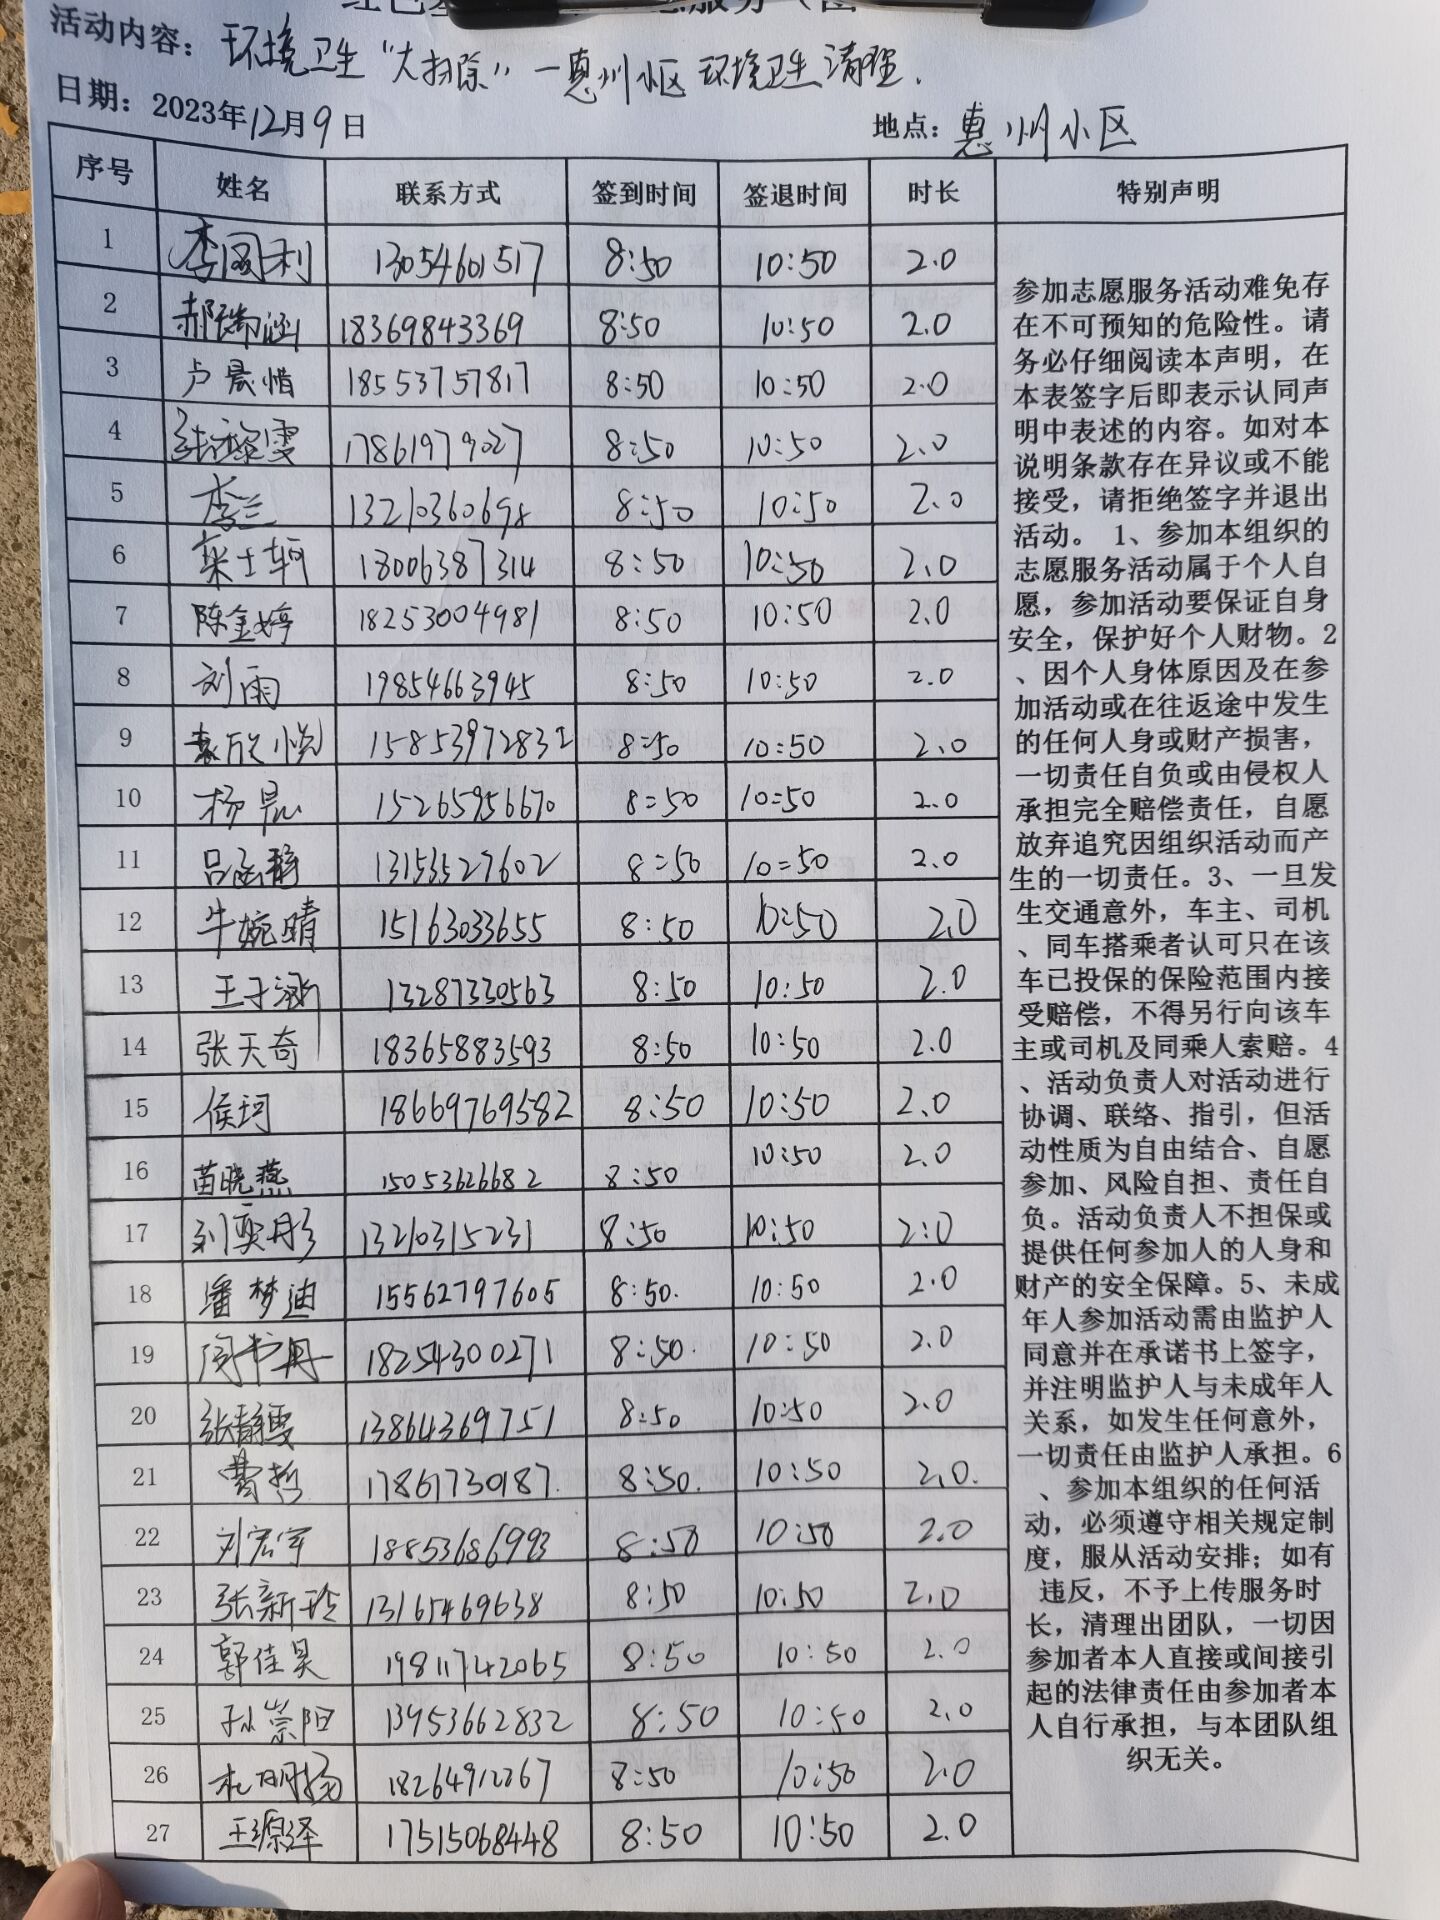 活动内容：环境卫生“大扫除”—惠州小区环境卫生清理.
日期：2023年12月9日 地点：惠州小区
序号 姓名 联系方式 签到时间 签退时间 时长 特别声明
1 李国利 13054601517 8:50 10:50 2.0
2 郝瑞涵 18369843369 8:50 10:50 2.0
3 卢晨惜 18553757817 8:50 10:50 2.0
4 17861979027 8:50 10:50 2.0
5 李兰 13210360698 8:50 10:50 2.0
6 栾士轲 18006387314 8:50 10:50 2.0
7 陈金婷 18253004981 8:50 10:50 2.0
8 刘雨 19854663945 8:50 10:50 2.0
9 袁欣悦 15853972832 8:50 10:50 2.0
10 杨晨 15265956670 8:50 10:50 2.0
11 吕孟静 13153527602 8:50 10:50 2.0
12 牛婉晴 15163033655 8:50 10:50 2.0
13 王子涵 13287330563 8:50 10:50 2.0
14 张天奇 18365883593 8:50 10:50 2.0
15 侯珂 18669769582 8:50 10:50 2.0
16 苗晓燕 15053626682 8:50 10:50 2.0
17 刘奕彤 13210315231 8:50 10:50 2:0
18 潘梦迪 15562797605 8:50. 10:50 2.0
19 周书冉 18254300271 8:50. 10:50 2.0
20 张静雯 13864369751 8:50 10:50 2.0
21 费哲 17861730187. 8:50. 10:50 2.0.
22 刘宏宇 18853686993 8:50 10:50 2.0
23 张新玲 13165469638 8:50 10:50 2.0
24 郭佳昊 19811742065 8:50 10:50 2.0
25 孙崇阳 13953662832 8:50 10:50 2.0
26 杜明扬 18264912267 8:50 10:50 2.0
27 王源泽 17515068448 8:50 10:50 2.0
参加志愿服务活动难免存
在不可预知的危险性。请
务必仔细阅读本声明，在
本表签字后即表示认同声
明中表述的内容。如对本
说明条款存在异议或不能
接受，请拒绝签字并退出
活动。 1、参加本组织的
志愿服务活动属于个人自
愿，参加活动要保证自身
安全，保护好个人财物。2
、因个人身体原因及在参
加活动或在往返途中发生
的任何人身或财产损害，
一切责任自负或由侵权人
承担完全赔偿责任，自愿
放弃追究因组织活动而产
生的一切责任。3、一旦发
生交通意外，车主、司机
、同车搭乘者认可只在该
车已投保的保险范围内接
受赔偿，不得另行向该车
主或司机及同乘人索赔。4
、活动负责人对活动进行
协调、联络、指引，但活
动性质为自由结合、自愿
参加、风险自担、责任自
负。活动负责人不担保或
提供任何参加人的人身和
财产的安全保障。5、未成
年人参加活动需由监护人
同意并在承诺书上签字，
并注明监护人与未成年人
关系，如发生任何意外，
一切责任由监护人承担。6
、参加本组织的任何活
动，必须遵守相关规定制
度，服从活动安排；如有
违反，不予上传服务时
长，清理出团队，一切因
参加者本人直接或间接引
起的法律责任由参加者本
人自行承担，与本团队组
织无关。